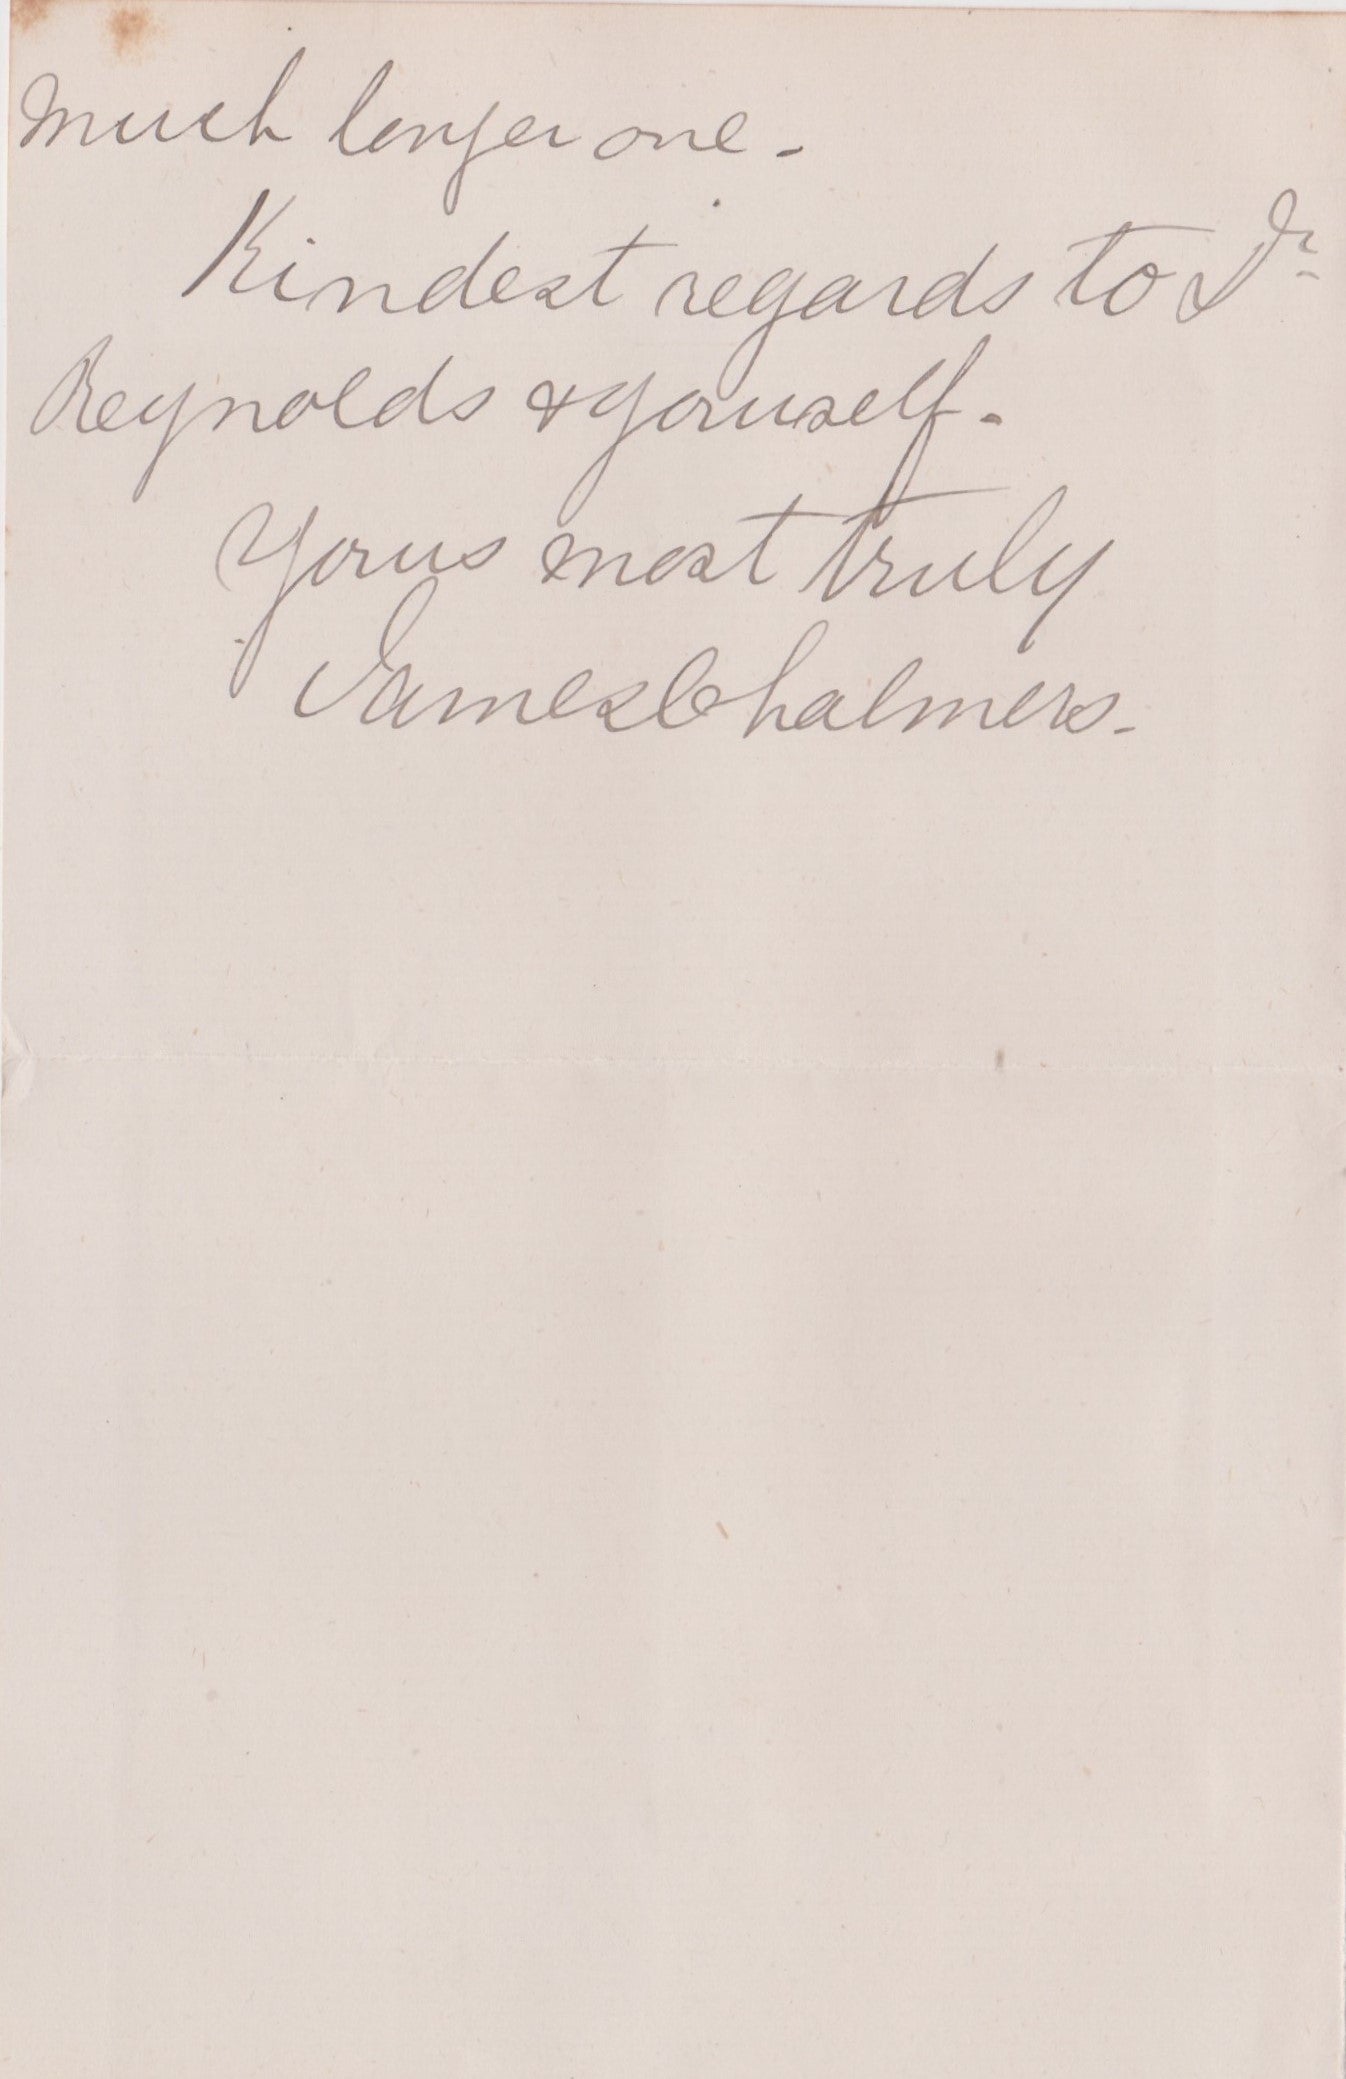 much longer one -
Kindest regards to Dr
Reynolds & yourself -
Yours most truly
James Chalmers -